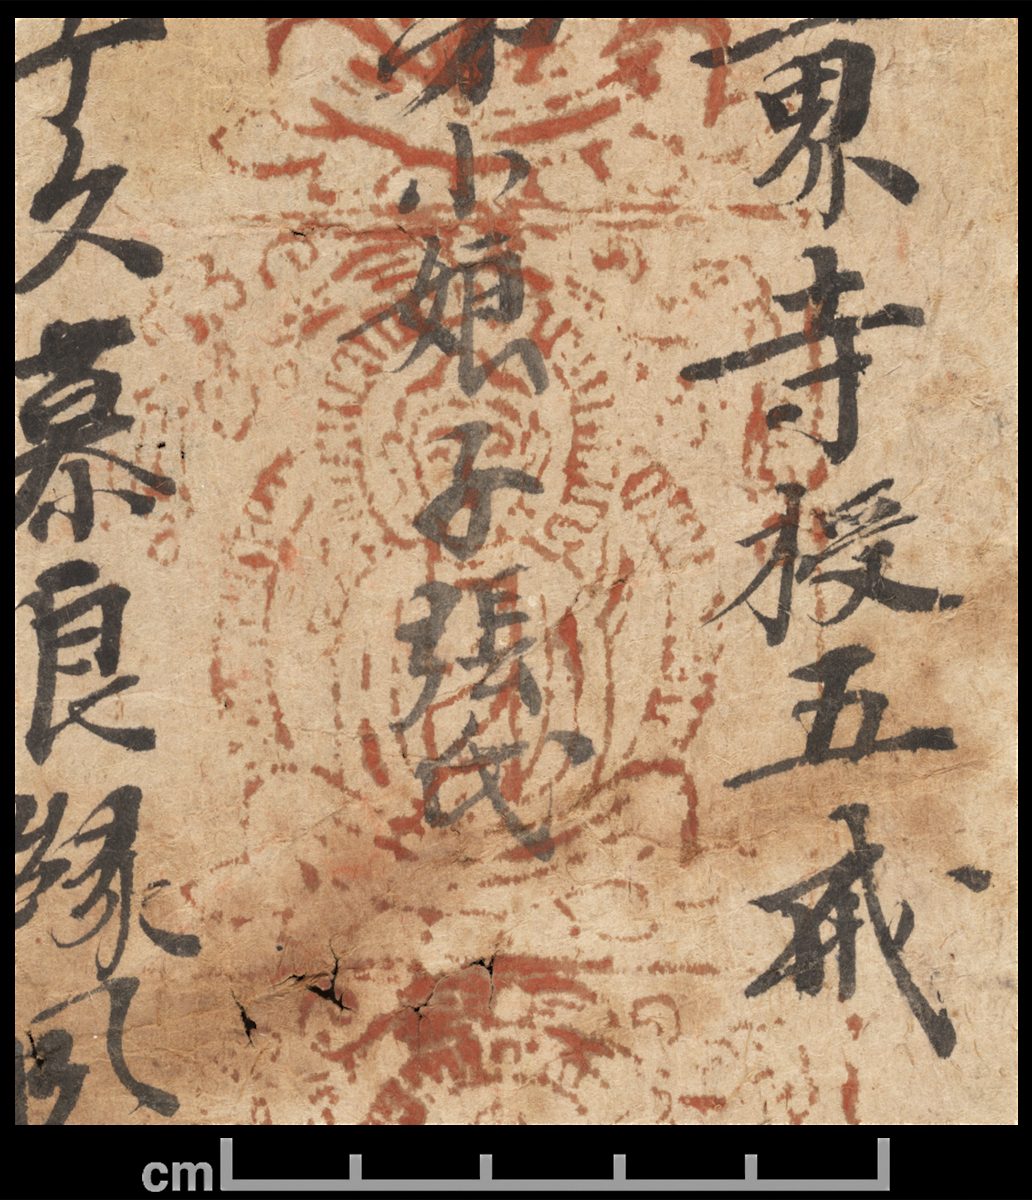 界寺授五戒
小娘子張氏
久慕良緣夙